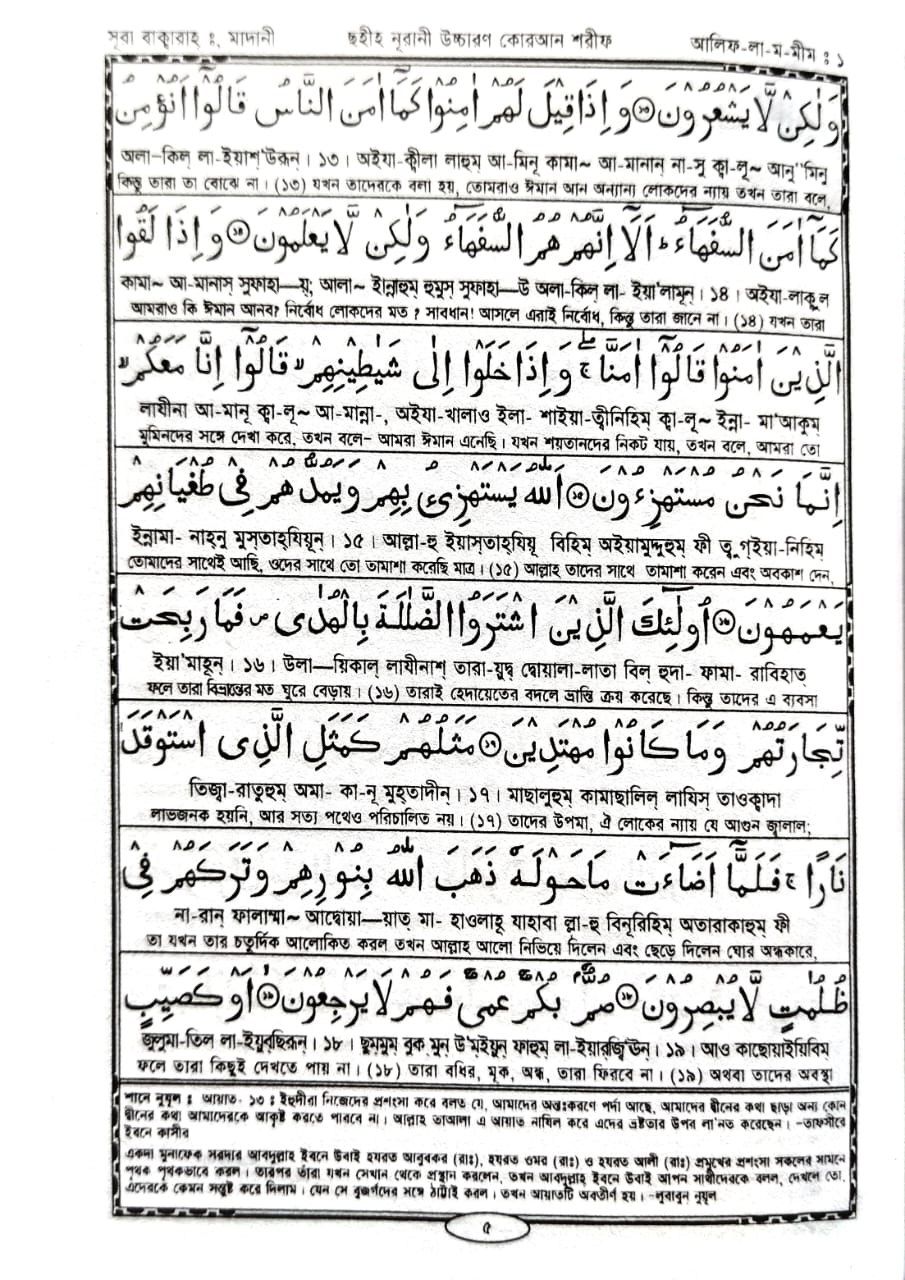 সূরা বাকারাহ ঃ, মাদানী ছহীহ নূরানী উচ্চারণ কোরআন শরীফ আলিফ-লা-ম-মীম ঃ ১
وَلٰكِنْ لَّا يَشْعُرُوْنَ ۝۱۲ وَاِذَا قِيْلَ لَهُمْ اٰمِنُوْا كَمَآ اٰمَنَ النَّاسُ قَالُوْٓا اَنُؤْمِنُ
অলা-কিল লা-ইয়াশ'উরূন। ১৩। অইযা-ক্বীলা লাহুম্ আ-মিনূ কামা~ আ-মানান্ না-সু ক্বা-লূ~ আনু"মিনু
কিন্তু তারা তা বোঝে না। (১৩) যখন তাদেরকে বলা হয়, তোমরাও ঈমান আন অন্যান্য লোকদের ন্যায় তখন তারা বলে,
كَمَآ اٰمَنَ السُّفَهَآءُ ؕ اَلَآ اِنَّهُمْ هُمُ السُّفَهَآءُ وَلٰكِنْ لَّا يَعْلَمُوْنَ ۝۱۳ وَاِذَا لَقُوا
কামা~ আ-মানাস্ সুফাহা—য়ু; আলা~ ইন্নাহুম্ হুমুস্ সুফাহা—উ অলা-কিল্ লা- ইয়া'লামূন্। ১৪। অইযা-লাকুল
আমরাও কি ঈমান আনব? নির্বোধ লোকদের মত ? সাবধান! আসলে এরাই নির্বোধ, কিন্তু তারা জানে না। (১৪) যখন তারা
الَّذِيْنَ اٰمَنُوْا قَالُوْٓا اٰمَنَّا ۚ وَاِذَا خَلَوْا اِلٰى شَيٰطِيْنِهِمْ ۙ قَالُوْٓا اِنَّا مَعَكُمْ ۙ
লাযীনা আ-মানূ ক্বা-লূ~ আ-মান্না-, অইযা-খালাও ইলা- শাইয়া-ত্বীনিহিম্ ক্বা-লূ~ ইন্না- মা'আকুম্
মুমিনদের সঙ্গে দেখা করে, তখন বলে- আমরা ঈমান এনেছি। যখন শয়তানদের নিকট যায়, তখন বলে, আমরা তো
اِنَّمَا نَحْنُ مُسْتَهْزِءُوْنَ ۝۱۴ اَللّٰهُ يَسْتَهْزِئُ بِهِمْ وَيَمُدُّهُمْ فِيْ طُغْيَانِهِمْ
ইন্নামা- নাহ্নু মুস্তাহ্যিয়ূন্। ১৫। আল্লা-হু ইয়াস্তাহ্যিয়ূ বিহিম্ অইয়ামুদ্দুহুম্ ফী ত্বুগ্ইয়া-নিহিম্
তোমাদের সাথেই আছি, ওদের সাথে তো তামাশা করেছি মাত্র। (১৫) আল্লাহ তাদের সাথে তামাশা করেন এবং অবকাশ দেন,
يَعْمَهُوْنَ ۝۱۵ اُولٰٓئِكَ الَّذِيْنَ اشْتَرَوُا الضَّلٰلَةَ بِالْهُدٰى ۪ فَمَا رَبِحَتْ
ইয়া'মাহূন্। ১৬। উলা—য়িকাল্ লাযীনাশ্ তারা-য়ুদ্ব্ দ্বোয়ালা-লাতা বিল্ হুদা- ফামা- রাবিহাত্
ফলে তারা বিভ্রান্তের মত ঘুরে বেড়ায়। (১৬) তারাই হেদায়েতের বদলে ভ্রান্তি ক্রয় করেছে। কিন্তু তাদের এ ব্যবসা
تِّجَارَتُهُمْ وَمَا كَانُوْا مُهْتَدِيْنَ ۝۱۶ مَثَلُهُمْ كَمَثَلِ الَّذِى اسْتَوْقَدَ
তিজ্বা-রাতুহুম্ অমা- কা-নূ মুহ্তাদীন্। ১৭। মাছালুহুম্ কামাছালিল্ লাযিস্ তাওক্বাদা
লাভজনক হয়নি, আর সত্য পথেও পরিচালিত নয়। (১৭) তাদের উপমা, ঐ লোকের ন্যায় যে আগুন জ্বালাল;
نَارًا ۚ فَلَمَّآ اَضَآءَتْ مَا حَوْلَهٗ ذَهَبَ اللّٰهُ بِنُوْرِهِمْ وَتَرَكَهُمْ فِيْ
না-রান্ ফালাম্মা~ আদ্বোয়া—য়াত্ মা- হাওলাহূ যাহাবা ল্লা-হু বিনূরিহিম্ অতারাকাহুম্ ফী
তা যখন তার চতুর্দিক আলোকিত করল তখন আল্লাহ আলো নিভিয়ে দিলেন এবং ছেড়ে দিলেন ঘোর অন্ধকারে,
ظُلُمٰتٍ لَّا يُبْصِرُوْنَ ۝۱۷ صُمٌّۢ بُكْمٌ عُمْيٌ فَهُمْ لَا يَرْجِعُوْنَ ۝۱۸ اَوْ كَصَيِّبٍ
জুলুমা-তিল্ লা-ইয়ুবছিরূন্। ১৮। ছুম্মুম্ বুক্ মুন্ উ'ম্ইয়ুন্ ফাহুম্ লা-ইয়ারজ্বি'ঊন্। ১৯। আও কাছোয়াইয়িবিম্
ফলে তারা কিছুই দেখতে পায় না। (১৮) তারা বধির, মূক, অন্ধ, তারা ফিরবে না। (১৯) অথবা তাদের অবস্থা
শানে নুযূল ঃ আয়াত- ১৩ ঃ ইহুদীরা নিজেদের প্রশংসা করে বলত যে, আমাদের অন্তঃকরণে পর্দা আছে, আমাদের দ্বীনের কথা ছাড়া অন্য কোন
দ্বীনের কথা আমাদেরকে আকৃষ্ট করতে পারবে না। আল্লাহ তাআলা এ আয়াত নাযিল করে এদের ভ্রষ্টতার উপর লা'নত করেছেন। -তাফসীরে
ইবনে কাসীর
একদা মুনাফেক সরদার আবদুল্লাহ ইবনে উবাই হযরত আবুবকর (রাঃ), হযরত ওমর (রাঃ) ও হযরত আলী (রাঃ) প্রমুখের প্রশংসা সকলের সামনে
পৃথক পৃথকভাবে করল। তারপর তাঁরা যখন সেখান থেকে প্রস্থান করলেন, তখন আবদুল্লাহ ইবনে উবাই আপন সাথীদেরকে বলল, দেখলে তো,
এদেরকে কেমন সন্তুষ্ট করে দিলাম। যেন সে বুজর্গদের সঙ্গে ঠাট্টাই করল। তখন আয়াতটি অবতীর্ণ হয়। -লুবাবুন নুযূল
৫